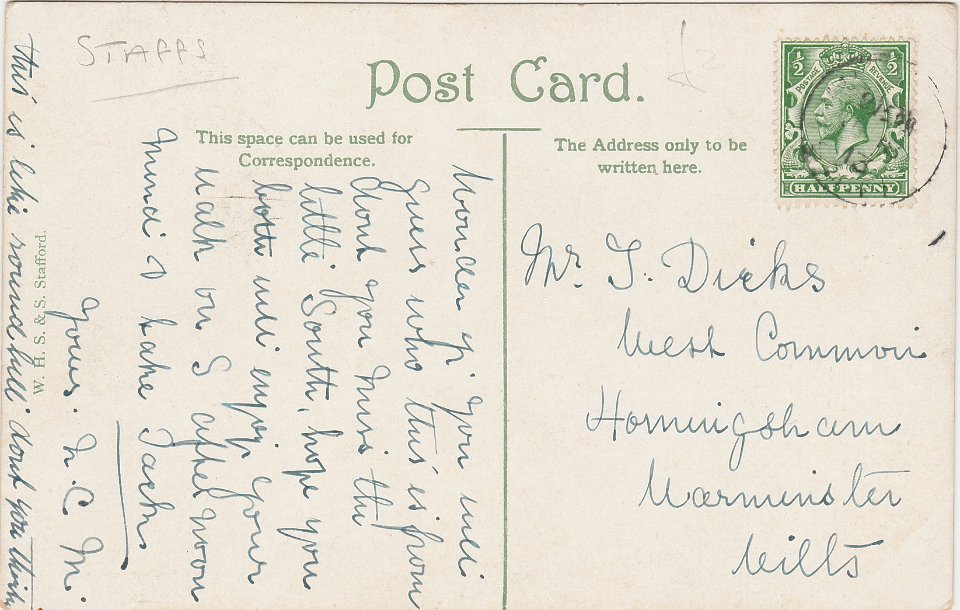 STAFFS
Post Card.
This space can be used for
Correspondence.
The Address only to be
written here.
1/2 POSTAGE REVENUE 1/2
HALFPENNY
Wonder if you will
guess who this is from
dont you miss the
little South, hope you
both will enjoy your
walk on S afternoon
mind & take Jack
Yours. N. C. M.
this is like round hill dont you think
W. H. S. & S. Stafford.
Mr. T. Dicks
West Common
Horningsham
Warminster
Wilts